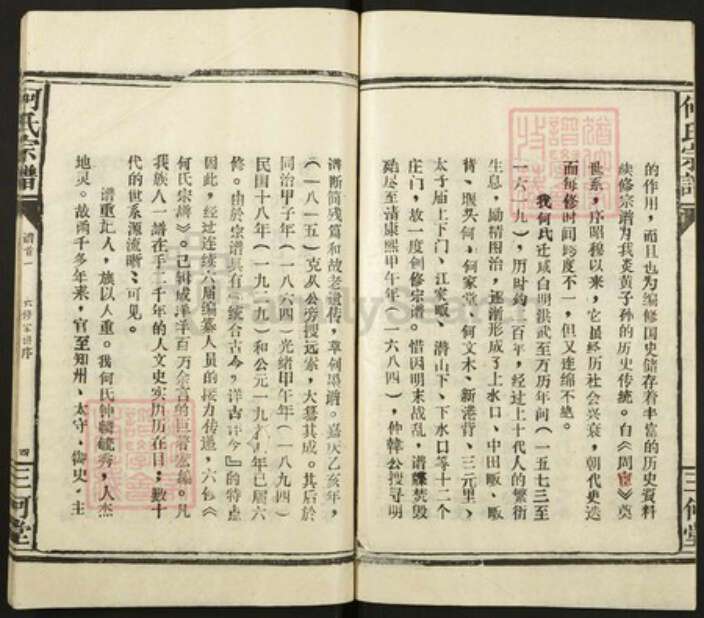 何氏宗谱
三何堂
的作用，而且也为编修国史储存着丰富的历史資料
续修宗谱为我炎黄子孙的历史传统。自《周官》奠
世系，序昭穆以来，它虽经历社会兴衰，朝代更迭
而每修时间跨度不一，但又连绵不绝。
我何氏迁咸自明洪武至万历年间（一五七三至
一六一九），历时约二百年，经过上十代人的繁衍
生息，励精图治，逐渐形成了上水口、中田畈、畈
背、堰头何、何家堂、何文木、新港背、三元里、
太子庙上下门、江家畈、潜山下、下水口等十二个
庄门，故一度创修宗谱。惜因明末战乱，谱牒焚毁
殆尽至清康熙甲午年（一六八四），仲韓公搜寻明
清断简残篇和故老遗传，草创墨谱。嘉庆乙亥年，
（一八一五）克从公旁搜远索，大集其成。其后於
同治甲子年（一八六四）光绪甲午年（一八九四）
民国十八年（一九二九）和公元一九 年已届六
修。由於宗谱具有『统合古今，详古详今』的特点
因此，经过连续六届编纂人员的接力传递，六修《
何氏宗谱》。已辑成洋洋百万余言的巨著宏编。凡
我族人一谱在手二千年的人文史实历历在目；数十
代的世系源流晰晰可见。
谱重记人，族以人重。我何氏钟毓毓秀，人杰
地灵。故两千多年来，官至知州、太守、御史、主
何氏宗譜
谱首一
六修家谱序
四
三何堂
FamilySearch